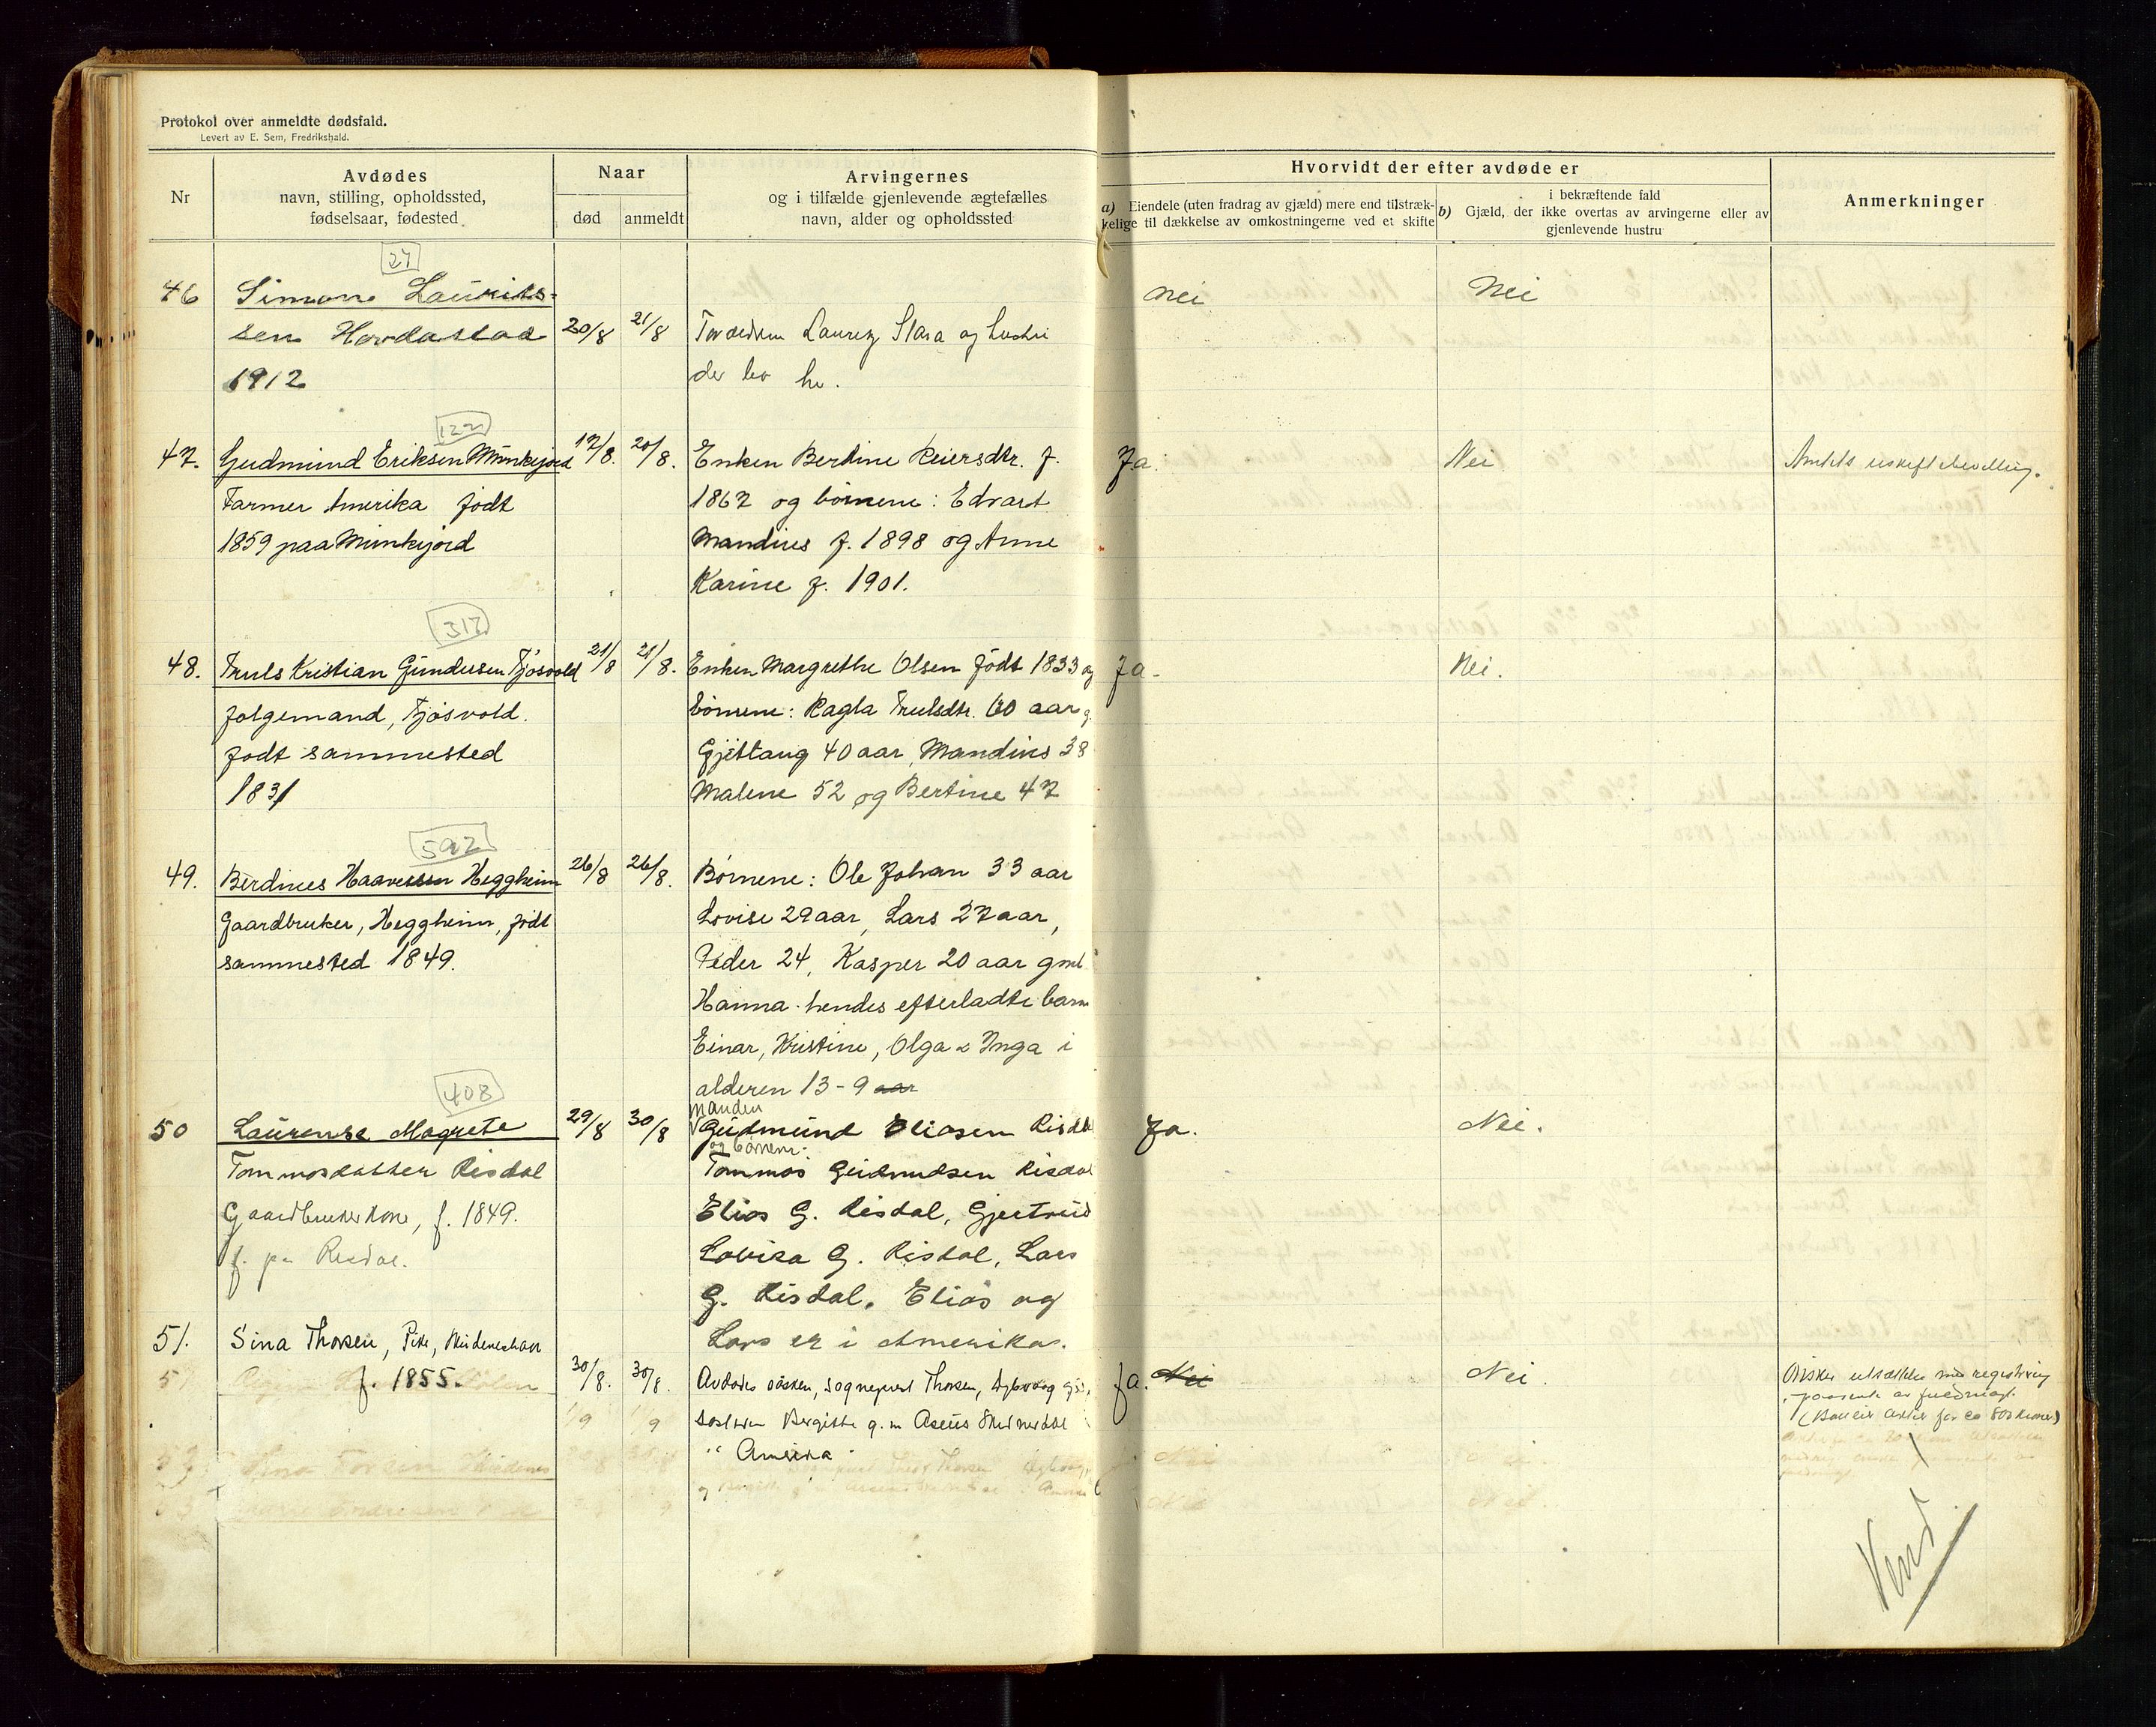 Protokol over anmeldte dødsfald.
Levert av E. Sem, Fredrikshald.
Nr
Avdødes
navn, stilling, opholdssted,
fødselsaar, fødested
Naar
død
anmeldt
Arvingernes
og i tilfælde gjenlevende ægtefælles
navn, alder og opholdssted
Hvorvidt der efter avdøde er
a) Eiendele (uten fradrag av gjæld) mere end tilstræk-
kelige til dækkelse av omkostningerne ved et skifte
i bekræftende fald
b) Gjæld, der ikke overtas av arvingerne eller av
gjenlevende hustru
Anmerkninger
27
46
Simon Laurits-
sen Hovdastad
1912
20/8
21/8
Laurez og
nei
Nei
122
47.
Gudmund Eriksen Munkejord
Farmer Amerika født
1859 paa Munkejord
17/8.
20/8.
Enken Bertine Reiersdtr. f.
1867 og børnene: Edvart
Mandius f. 1898 og Anne
Karine f. 1901.
Ja.
Nei
Amtets uskiftebevilling.
317
48.
Truls Kristian Gundersen Fjøsvold
folgemand, Fjøsvold.
født sammested
1831
21/8
21/8.
Enken Margrethe Olsen født 1833 og
børnene: Ragla Trulsdtr. 60 aar
Gjettaug 40 aar, Mandius 38
Malene 52 og Bertine 47
Ja.
Nei.
592
49.
Berdines Haavessen Heggheim
Gaardbruker, Heggheim, født
sammested 1849.
26/8
26/8.
Børnene: Ole Johan 33 aar
Lovise 29 aar, Lars 27 aar,
Peder 24, Kasper 20 aar
Hanna hendes efterladte barn
Einar, Kristine, Olga & Inga i
alderen 13-9 aar
408
50
Laurense Magrete
Tommosdatter Risdal
Gaardbrukerkone, f. 1849.
f. paa Risdal.
29/8
30/8
manden
Gudmund Eliasen Risdal
og børnene:
Tommos Gudmundsen Risdal
Elias G. Risdal, Gjertrud
Lovisa G. Risdal, Lars
G. Risdal. Elias og
Lars er i Amerika.
Ja.
Nei.
51.
Sina Thorsen, Pike, Skudeneshavn
f. 1855.
30/8.
30/8.
Avdødes søsken, sogneprest Thorsen,
søsteren Bergitte g. m.
" Amerika
Ja. Nei
Nei.
Ønsker
1/9
1/9
Vend